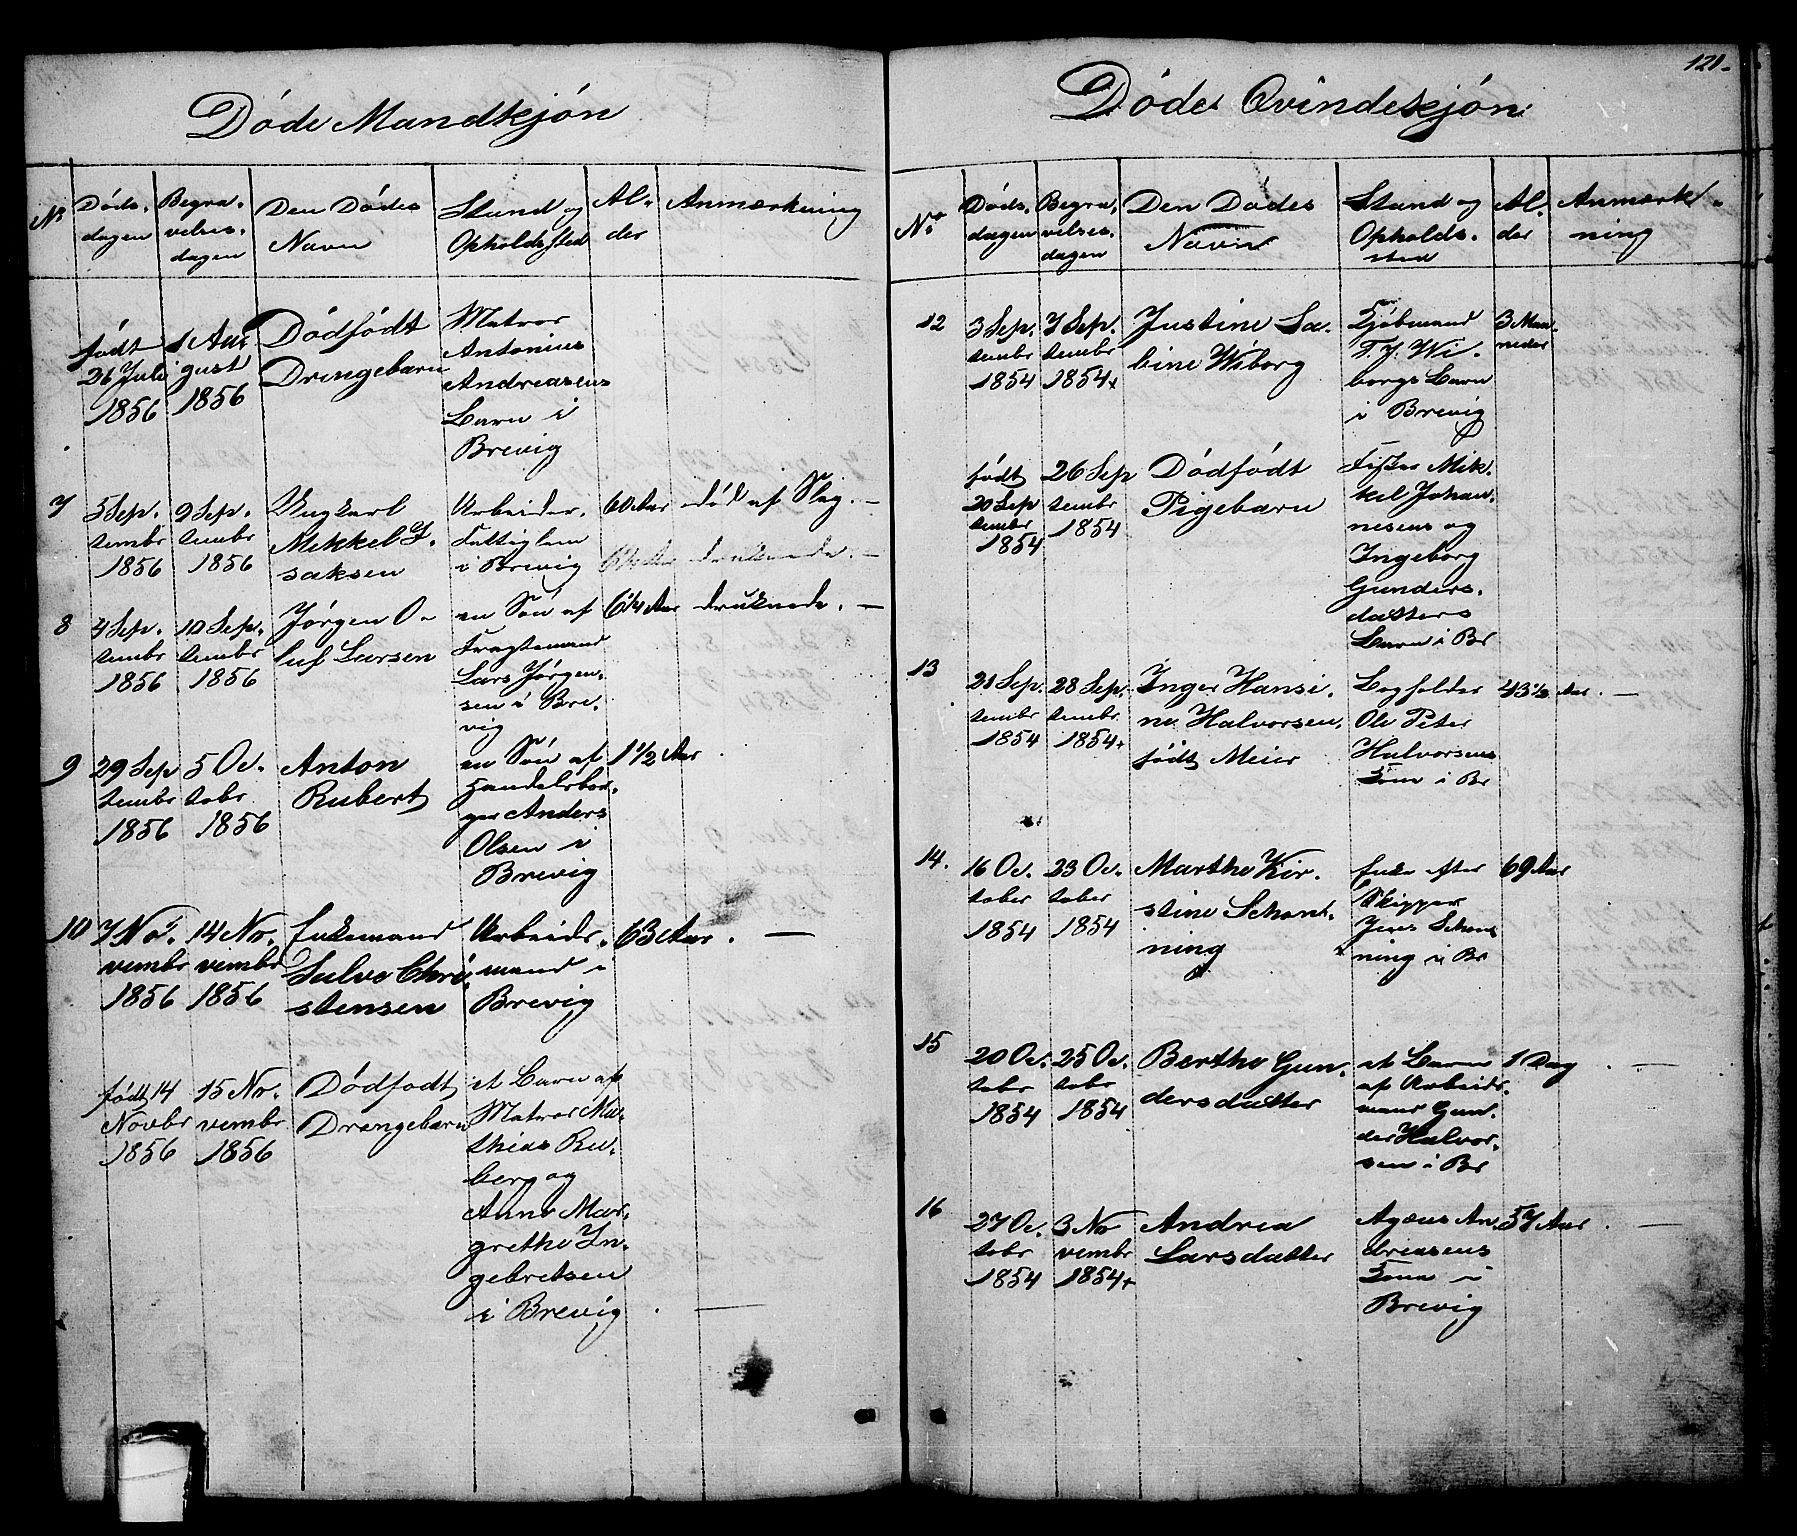 Døde Mandkjøn
No
Døds-
dagen
Begra-
velses-
dagen
Den Dødes
Navn
Stand og
Opholdssted
Al-
der
Anmærkning
født
26 Juli
1856
1 Au-
gust
1856
Dødfødt
Drengebarn
Matros
Antonius
Andreasens
Barn i
Brevig
7
5 Sep-
tembr
1856
9 Sep-
tembr
1856
Ungkarl
Mikkel I-
saksen
Arbeider,
Fattiglem
i Brevig
60 Aar
død af Slag. —
druknede. —
8
4 Sep-
tembr
1856
10 Sep-
tembr
1856
Jørgen O-
luf Larsen
en Søn af
Fragtemand
Lars Jørgen-
sen i Bre-
vig
6 1/4 Aar
druknede. —
9
29 Sep
tembr
1856
5 Oc-
tobr
1856
Anton
Rubert
en Søn af
Handelsbor-
ger Anders
Olsen i
Brevig
1 1/2 Aar
10
7 No-
vembr
1856
14 No-
vembr
1856
Enkemand
Salve Chri-
stensen
Arbeids-
mand i
Brevig
63 Aar. —
født 14
Novbr
1856
15 No-
vembr
1856
Dødfødt
Drengebarn
et Barn af
Matros Ma-
thias Ru-
berg og
Anne Mar-
grethe In-
gebretsen
i Brevig. —
121.
Døde Qvindeskjøn
No
Døds-
dagen
Begra-
velses-
dagen
Den Dødes
Navn
Stand og
Opholds-
sted
Al-
der
Anmærk-
ning
12
3 Sep-
tembr
1854
7 Sep-
tembr
1854+
Justine Sa-
bine Wiborg
Kjøbmand
F. J. Wi-
borgs Barn
i Brevig
3 Maa-
neder
født
20 Sep
tembr
1854
26 Sep
tembr
1854
Dødfødt
Pigebarn
Fisker Mik-
kel Johan-
nesens og
Ingeborg
Gunders-
datters
Barn i Br
13
21 Sep-
tembr
1854
28 Sep-
tembr
1854+
Inger Hansi-
ne Halvorsen
født Meier
Logfolder
Ole Peter
Halvorsens
Kone i Br
43 1/2 Aar. —
14.
16 Oc-
tober
1854
23 Oc-
tober
1854
Marthe Kir-
stine Schøn-
ning
Enke efter
Skipper
Jens Schøn
ning i Br
69 Aar
15
20 Oc-
tobr
1854
25 Oc-
tobr
1854
Berthe Gun-
dersdatter
et Barn
af Arbeids-
mand Gun-
der Halvor-
sen i Br
1 Dag. —
16
27 Oc-
tobr
1854
3 No
vembr
1854+
Andrea
Larsdatter
Agæus An-
dreasens
Kone i
Brevig
57 Aar. —